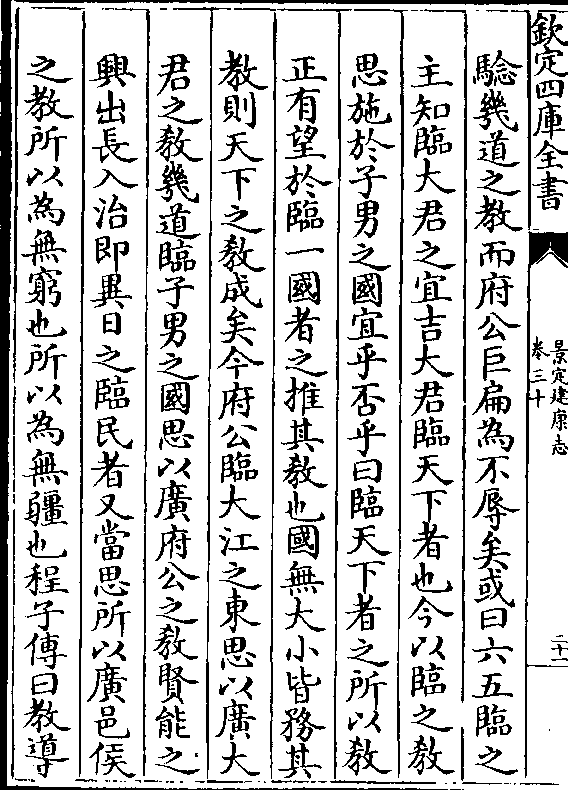 欽定四庫全書
景定建康志
卷三十
二十一
驗幾道之教而府公巨扁為不辱矣或曰六五臨之
主知臨大君之宜吉大君臨天下者也今以臨之教
思施於子男之國宜乎否乎曰臨天下者之所以教
正有望於臨一國者之推其教也國無大小皆務其
教則天下之教成矣今府公臨大江之東思以廣大
君之教幾道臨子男之國思以廣府公之教賢能之
興出長入治即異日之臨民者又當思所以廣邑侯
之教所以為無窮也所以為無疆也程子傳曰教導